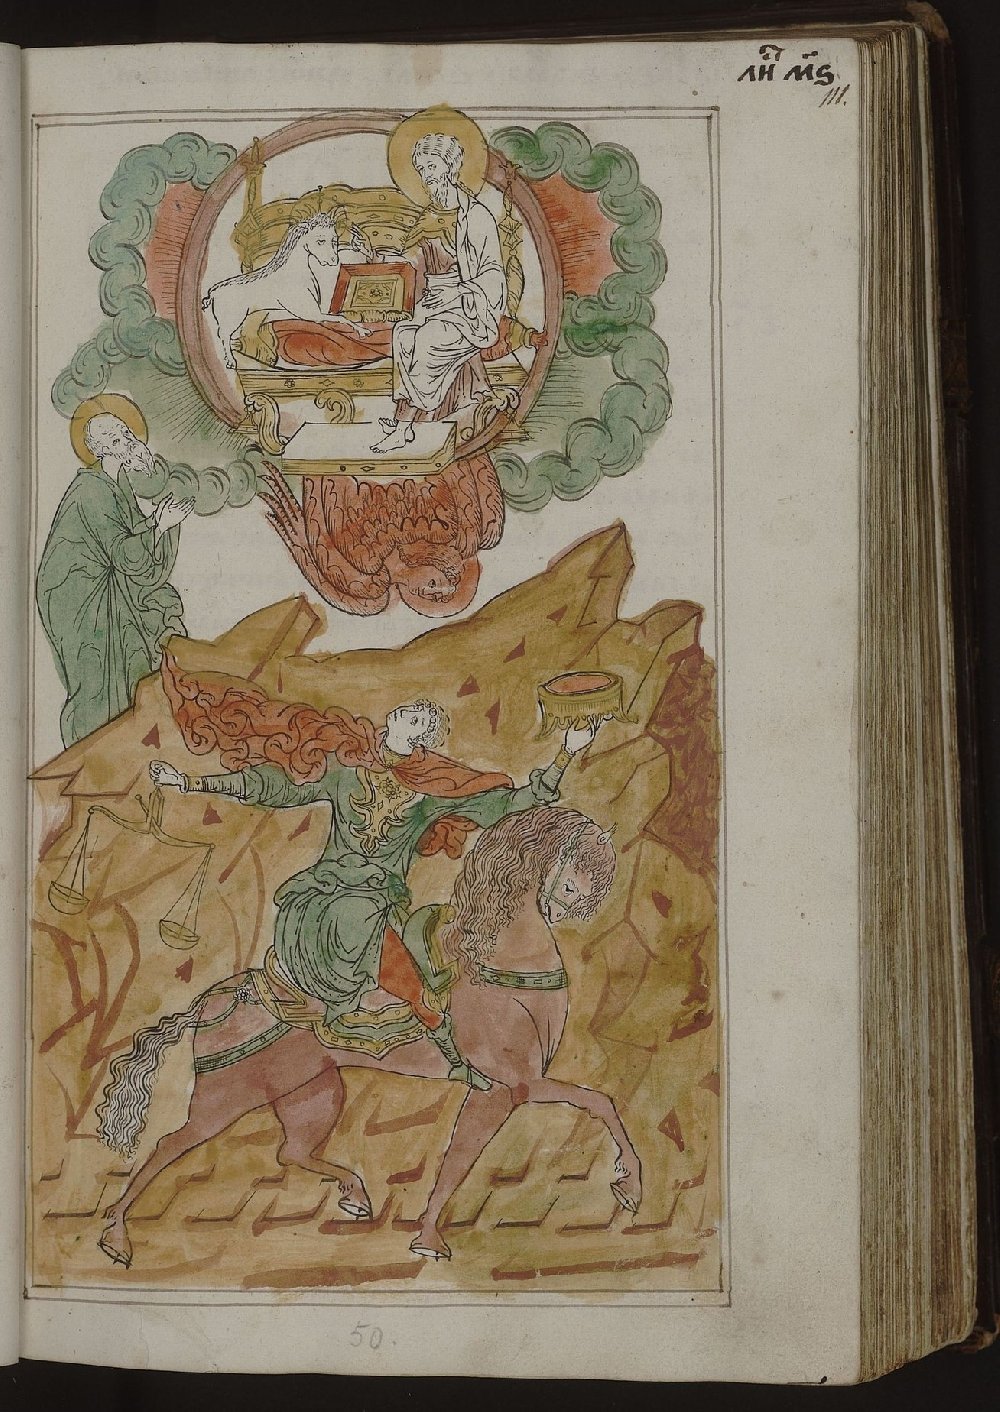 ли҃ м҃ѕ
111.
50.